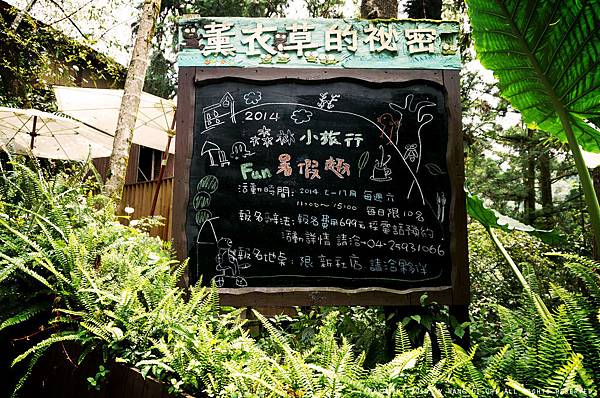 薰衣草的祕密
2014
森林小旅行
Fun 暑假趣
活動時間:2014 7月 每週
11:00~ 每日限10名
報名辦法:報名費用699元採電話預約
活動詳情 請洽-04-25931066
報名地
新社店 請洽夥伴